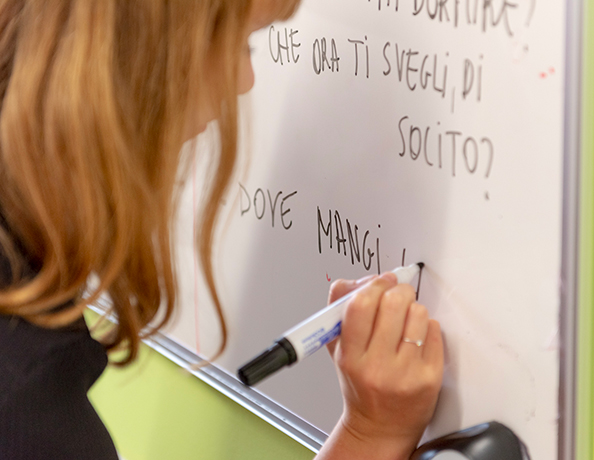 DORMIRE?
CHE ORA TI SVEGLI, DI
SOLITO?
DOVE MANGI